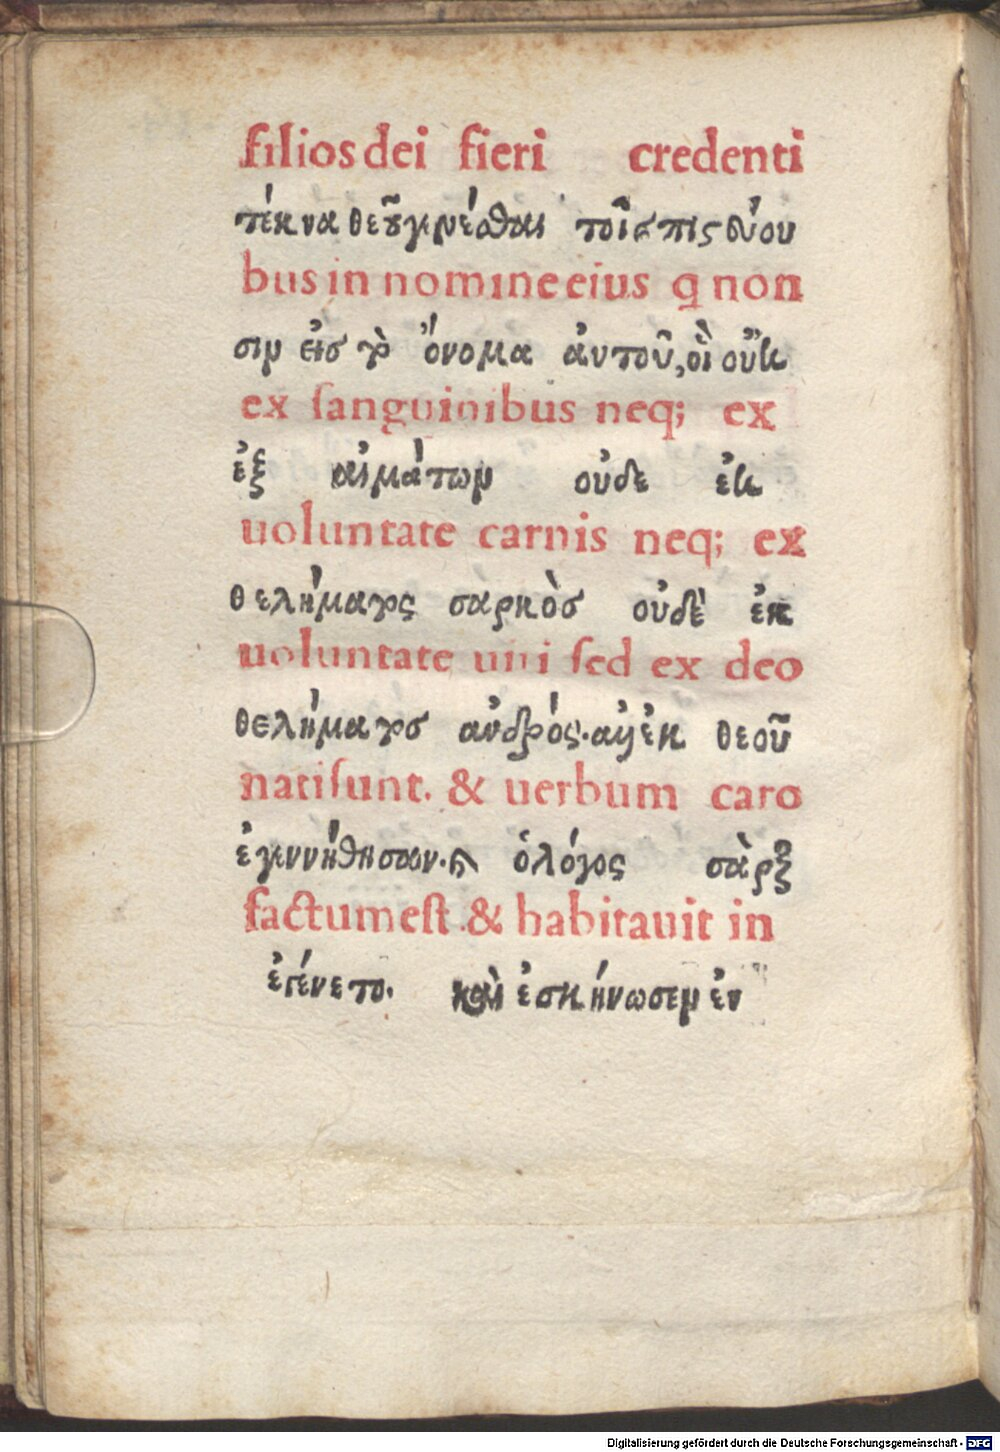 filios dei fieri credenti
τέκνα θεοῦ γενέσθαι τοῖς πιστεύου
bus in nomine eius q non
σιν εἰσ τὸ ὄνομα ἀυτοῦ, οἳ οὐκ
ex sanguinibus neq; ex
ἐξ αἱμάτων οὐδε ἐκ
uoluntate carnis neq; ex
θελήματος σαρκὸσ οὐδὲ ἐκ
uoluntate uiri sed ex deo
θελήματοσ ανδρός. αλλ' ἐκ θεοῦ
nati sunt. & uerbum caro
ἐγεννήθησαν. καὶ ὁ λόγος σὰρξ
factum est. & habitauit in
ἐγένετο. καὶ ἐσκήνωσεν ἐν
Digitalisierung gefördert durch die Deutsche Forschungsgemeinschaft - DFG